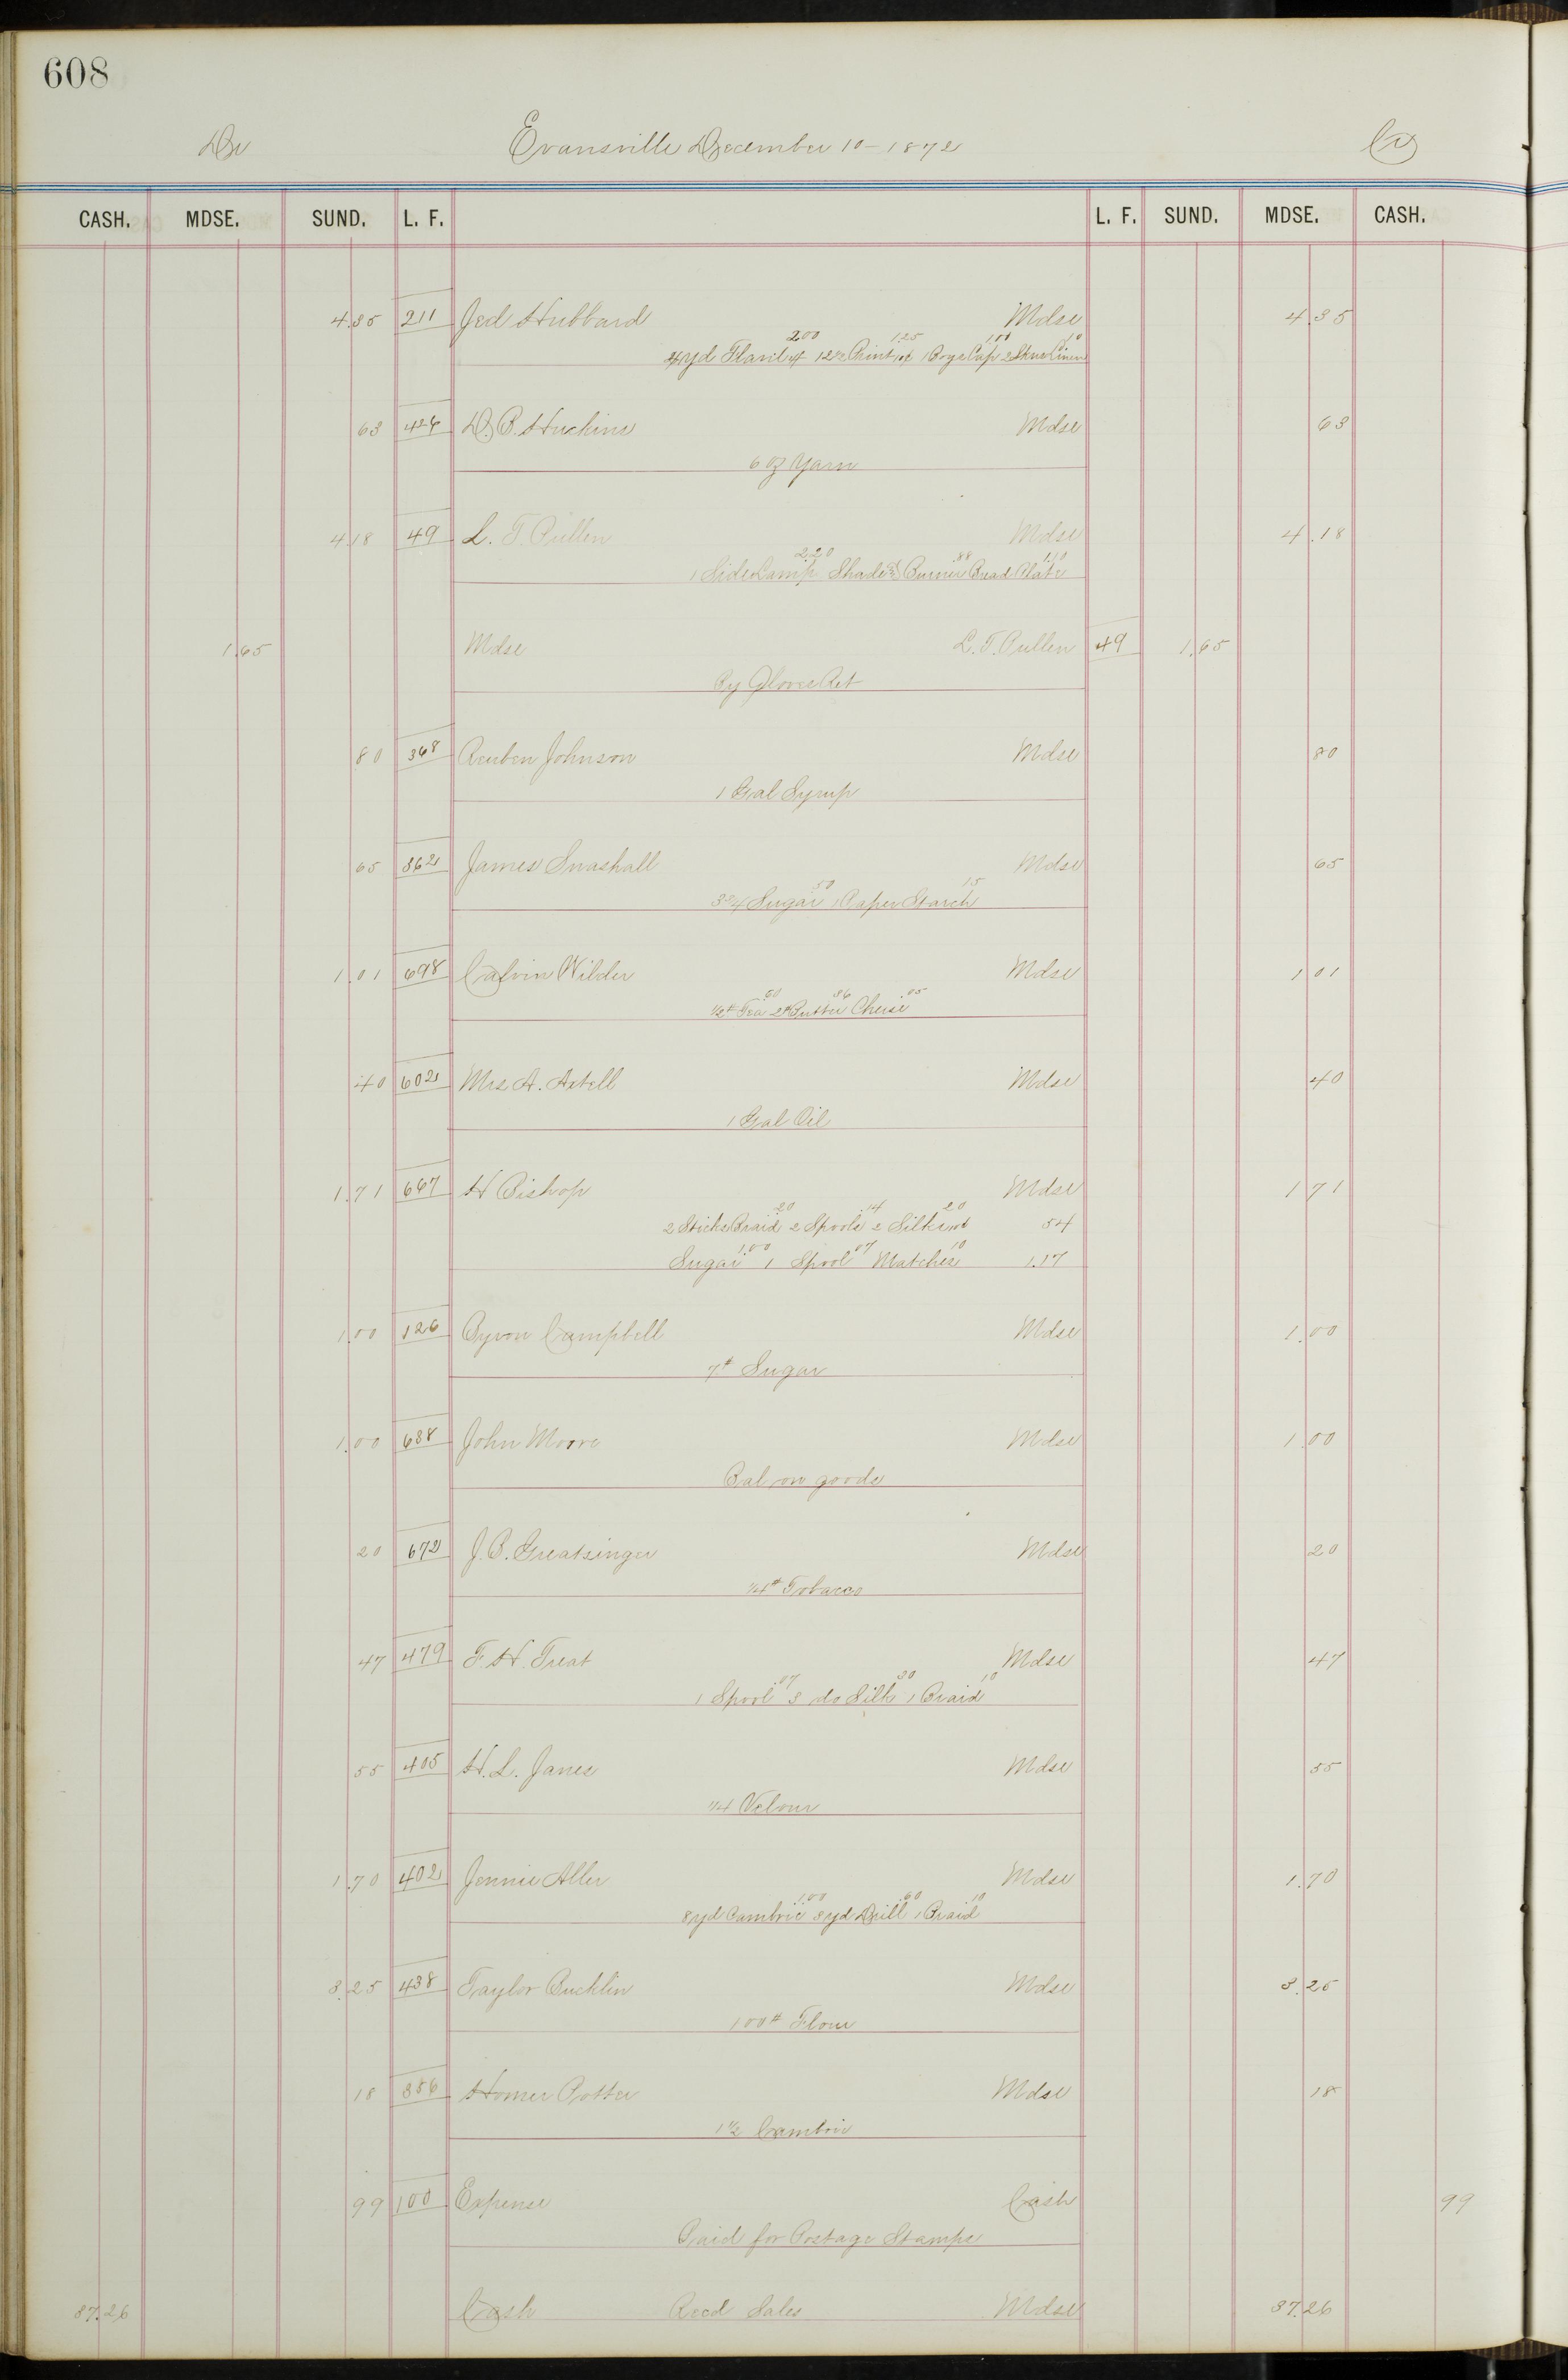 608
Dr Evansville December 10 - 1872 Cr
CASH. MDSE. SUND. L. F. L. F. SUND. MDSE. CASH.
4.35 211 Jed Hubbard Mdse 4.35
2.00 1.25 1.00 10
4yd 12½ Print 10¢ 1 Boys Cap 2 Linen
63 426 D. B. Huckins Mdse 63
6 oz Yarn
4.18 49 L. T. Pullen Mdse 4.18
2.20 .88 1.10
1 Side Lamp Shade & Burner Bread Plate
1.65 Mdse L. T. Pullen 49 1.65
By Gloves Ret
80 368 Reuben Johnson Mdse 80
1 Gal Syrup
65 362 James Snashall Mdse 65
50 15
3¾ Sugar 1 Paper Starch
1.01 698 Calvin Wilder Mdse 1.01
60 36 05
½# Tea 2# Butter Cheese
40 602 Mrs A. Axtell Mdse 40
1 Gal Oil
1.71 667 H Bishop Mdse 1.71
20 14 20
2 Sticks Braid 2 Spools 2 Silk 54
1.00 07 10
Sugar 1 Spool Matches 1.17
1.00 126 Byron Campbell Mdse 1.00
7# Sugar
1.00 688 John Moore Mdse 1.00
Bal on goods
20 672 J. B. Greatsinger Mdse 20
¼# Tobacco
47 479 F. H. Treat Mdse 47
07 30 10
1 Spool 3 do Silk 1 Braid
55 405 H. L. Janes Mdse 55
¼ Velour
1.70 402 Jennie Aller Mdse 1.70
1.00 60 10
8yd Cambric 3yd Drill 1 Braid
3.25 438 Taylor Bucklin Mdse 3.25
100# Flour
18 386 Homer Potter Mdse 18
1½ Cambric
99 100 Expense Cash 99
Paid for Postage Stamps
87.26 Cash Recd Sales Mdse 87.26